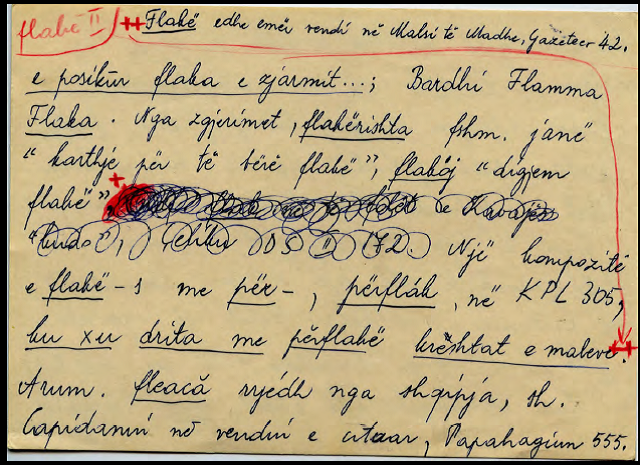 flakë II ⧺ Flakë edhe emër vendi në Malsi të Madhe, Gazeteer 42.
e posikur flaka e zjarmit...; Bardhi Flamma
Flaka. Nga zgjerimet, flakërishta fshm. janë
"karthje për të bërë flakë", flakój "digjem
flakë"
"budo", Çeliku DS II 172. Një kompozitë
e flakë-s me për-, përflák, në KPL 305,
ku xu drita me përflakë kreshtat e maleve.
Arum. fleacă rrjedh nga shqipja, sh.
Capidanin në vendin e cituar, Papahagiun 555.